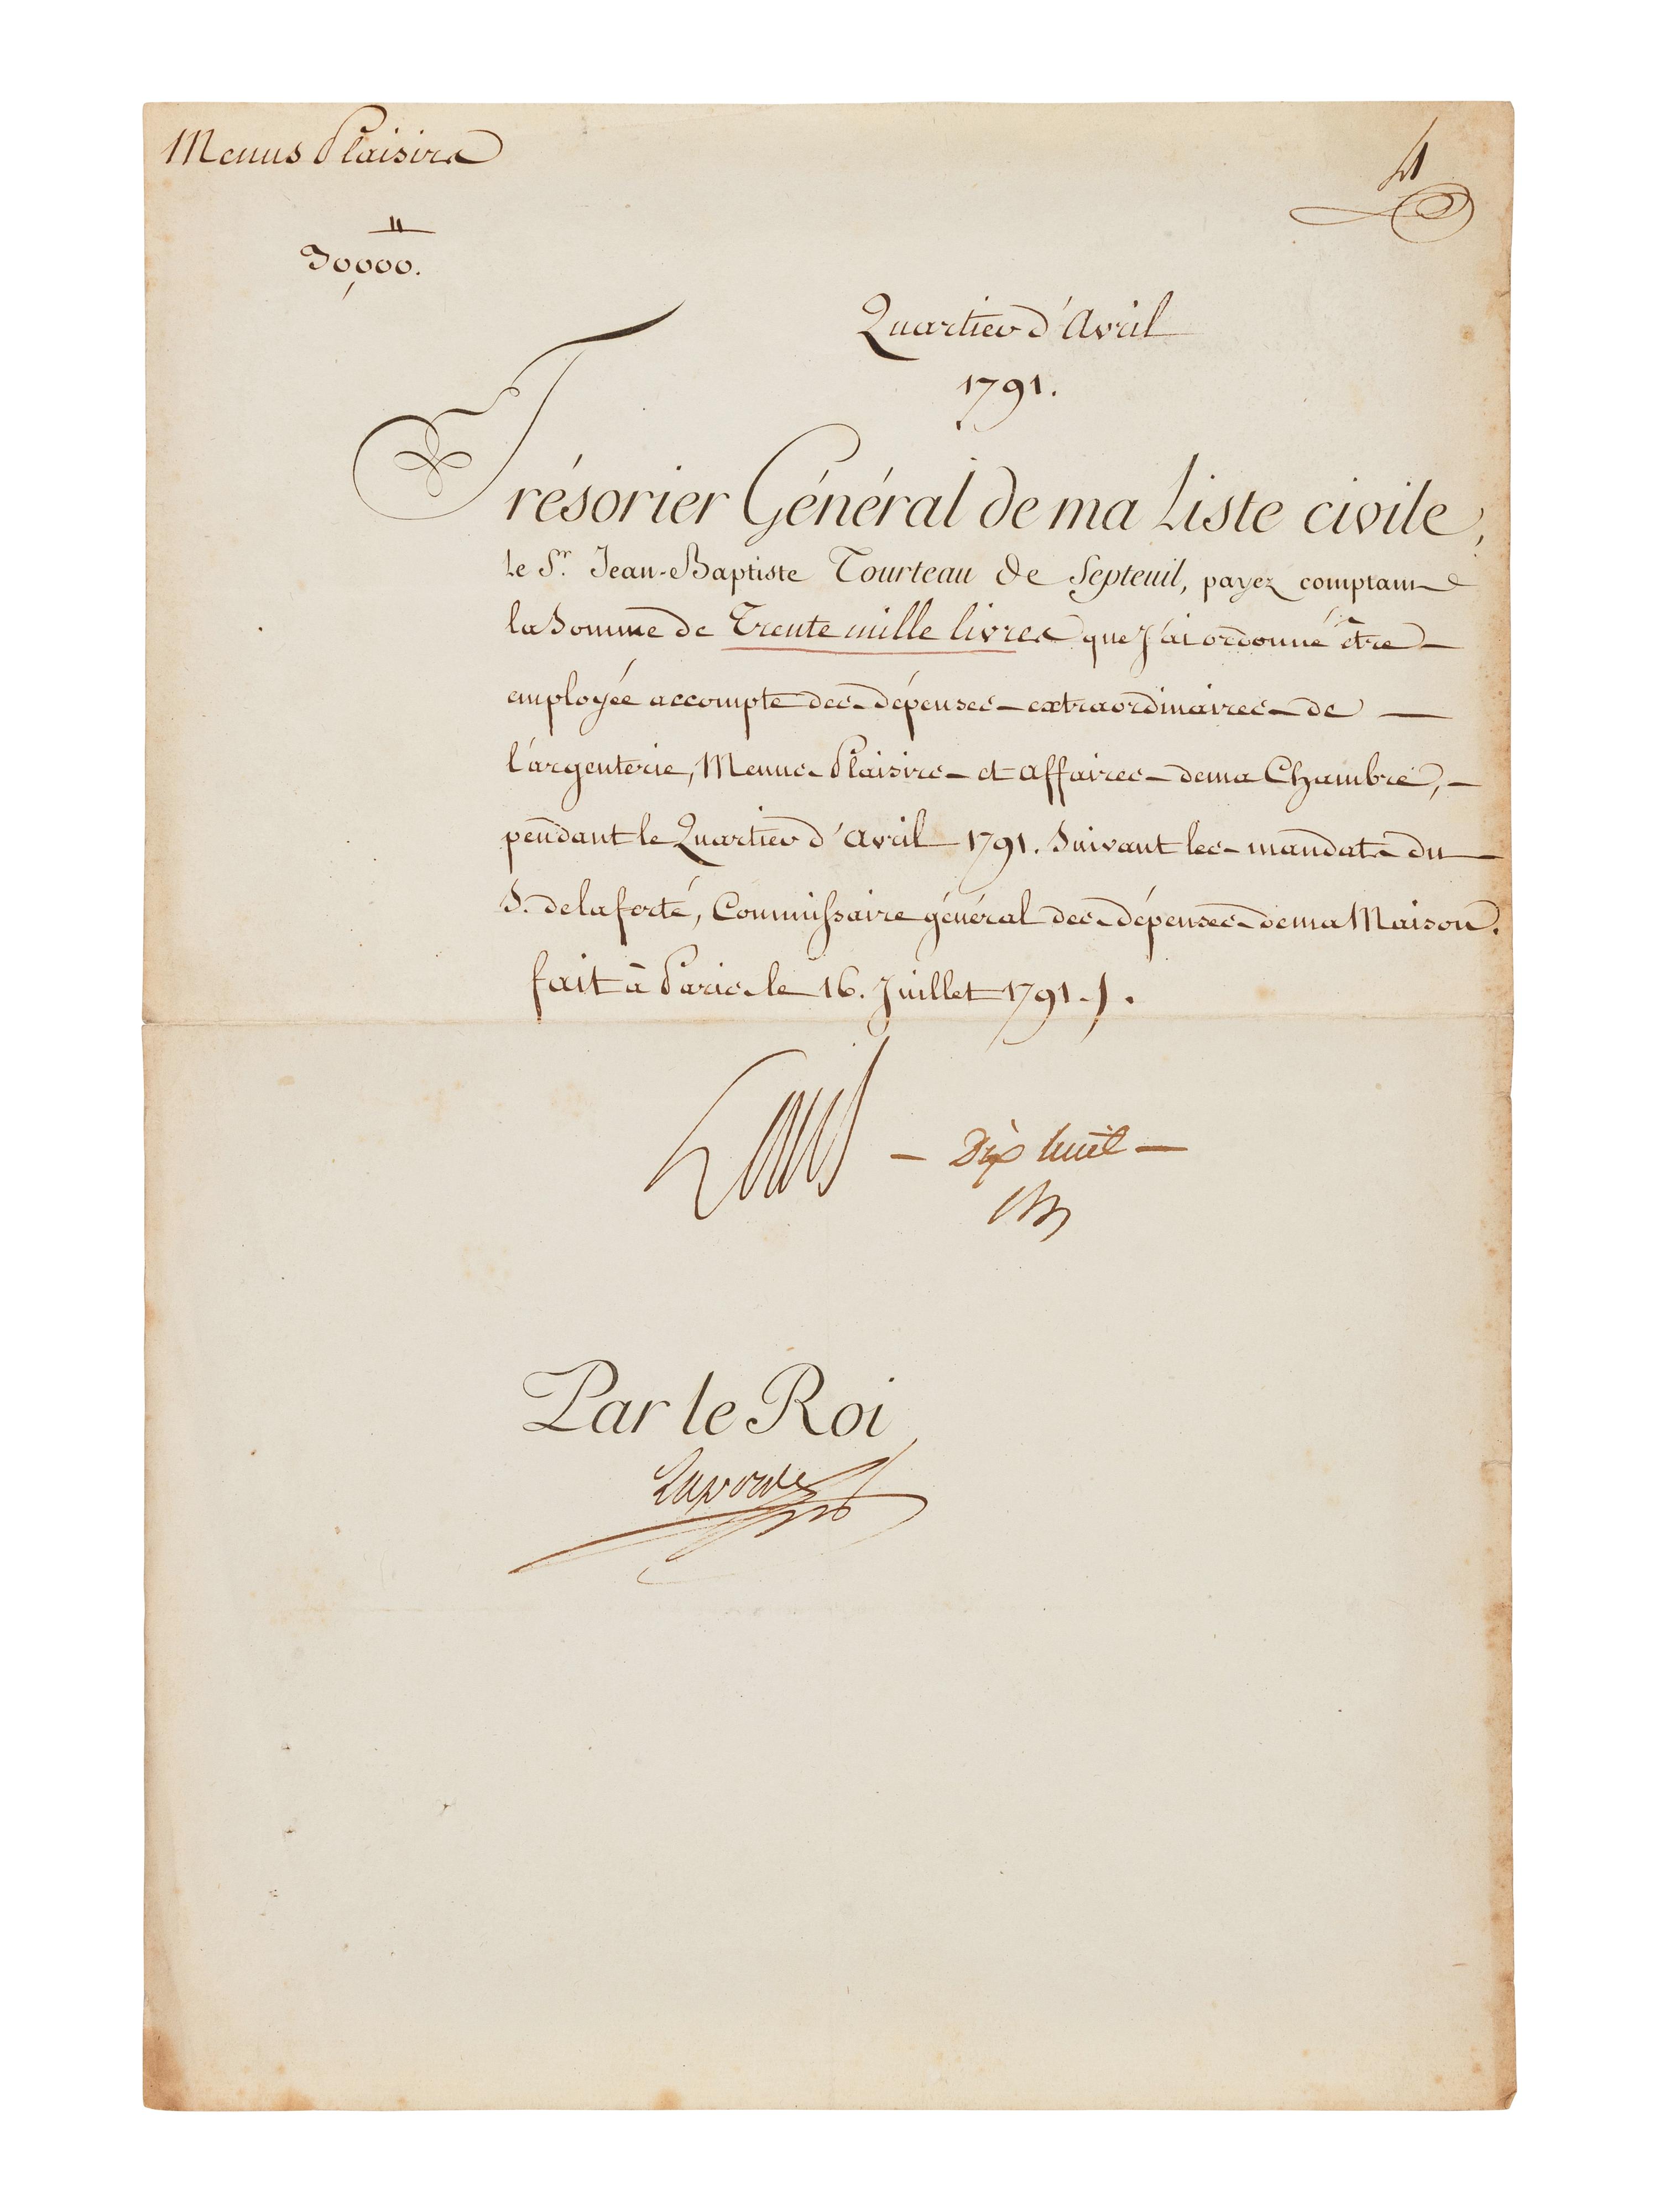 Menus Plaisirs
4
#
30,000.
Quartier d'Avril
1791.
Trésorier Général de ma Liste civile,
le Sr. Jean-Baptiste Tourteau de Septeuil, payez comptant
la Somme de Trente mille livres que J'ai ordonné être
employée accompte des dépenses extraordinaires de
l'argenterie, Menus Plaisirs et affaires de ma Chambre,
pendant le Quartier d'Avril 1791. Suivant les mandats du
S. de la ferté, Commissaire général des dépenses de ma Maison.
fait à Paris le 16. Juillet 1791.
Louis — Dix huit —
Par le Roi
Laporte